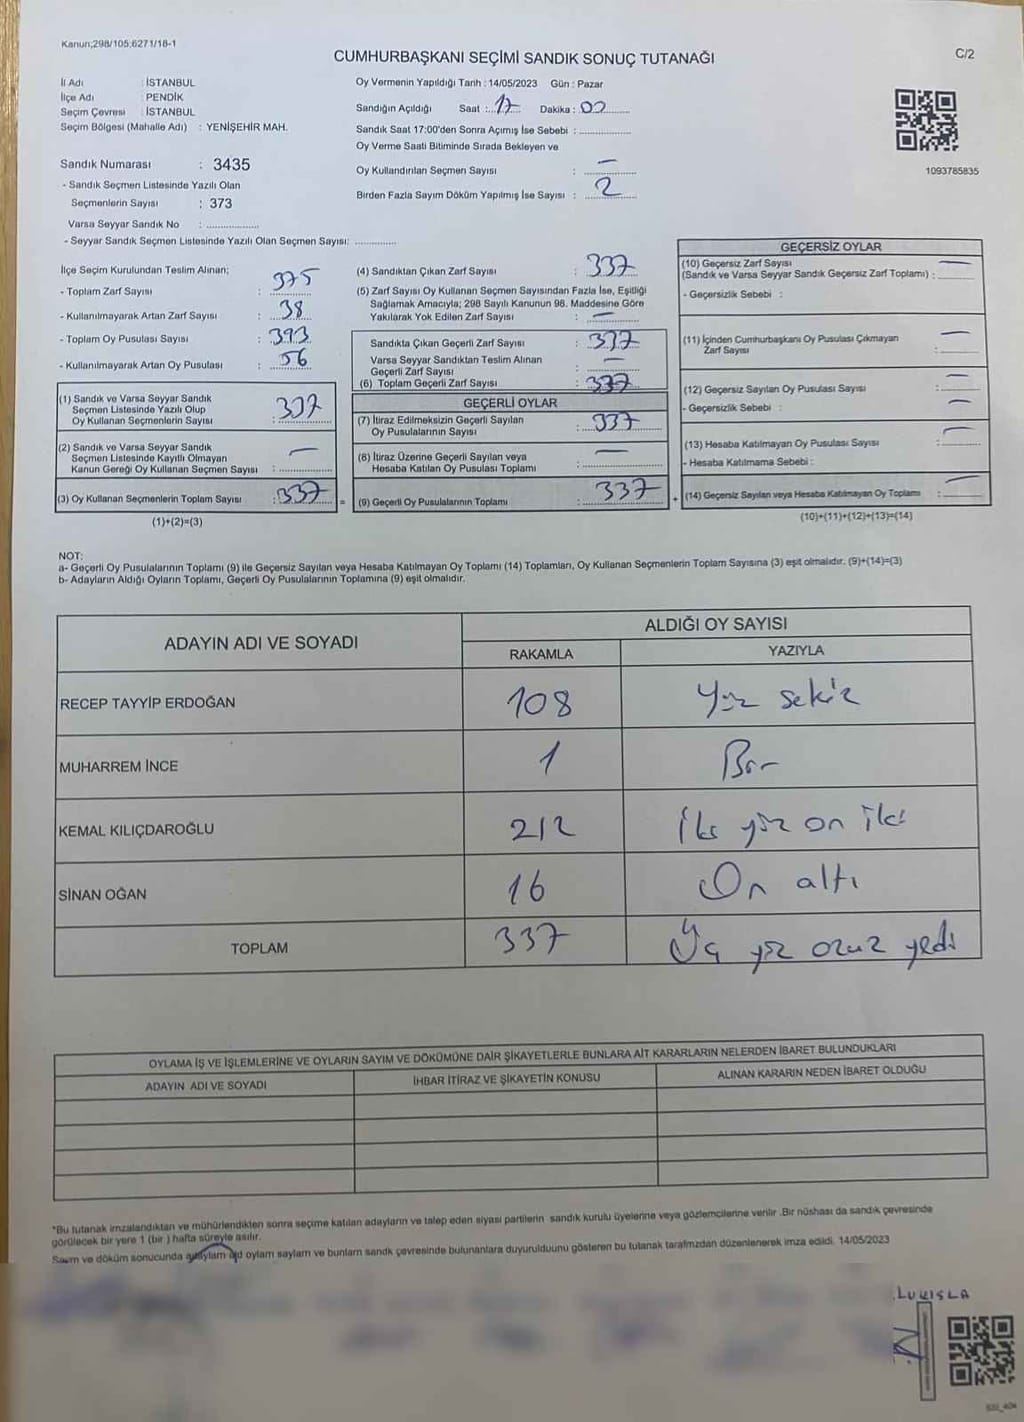 Kanun;298/105;6271/18-1
CUMHURBAŞKANI SEÇİMİ SANDIK SONUÇ TUTANAĞI
C/2
İl Adı : İSTANBUL
İlçe Adı : PENDİK
Seçim Çevresi : İSTANBUL
Seçim Bölgesi (Mahalle Adı) : YENİŞEHİR MAH.
Sandık Numarası : 3435
- Sandık Seçmen Listesinde Yazılı Olan
Seçmenlerin Sayısı : 373
Varsa Seyyar Sandık No : ..................
- Seyyar Sandık Seçmen Listesinde Yazılı Olan Seçmen Sayısı: ..............
Oy Vermenin Yapıldığı Tarih : 14/05/2023 Gün : Pazar
Sandığın Açıldığı Saat : 17 Dakika : 00
Sandık Saat 17:00'den Sonra Açımış İse Sebebi : ..................
Oy Verme Saati Bitiminde Sırada Bekleyen ve
Oy Kullandırılan Seçmen Sayısı : —
Birden Fazla Sayım Döküm Yapılmış İse Sayısı : 2
1093785835
İlçe Seçim Kurulundan Teslim Alınan;
- Toplam Zarf Sayısı : 375
- Kullanılmayarak Artan Zarf Sayısı : 38
- Toplam Oy Pusulası Sayısı : 393
- Kullanılmayarak Artan Oy Pusulası : 56
(1) Sandık ve Varsa Seyyar Sandık
Seçmen Listesinde Yazılı Olup
Oy Kullanan Seçmenlerin Sayısı : 337
(2) Sandık ve Varsa Seyyar Sandık
Seçmen Listesinde Kayıtlı Olmayan
Kanun Gereği Oy Kullanan Seçmen Sayısı : —
(3) Oy Kullanan Seçmenlerin Toplam Sayısı : 337 =
(1)+(2)=(3)
(4) Sandıktan Çıkan Zarf Sayısı : 337
(5) Zarf Sayısı Oy Kullanan Seçmen Sayısından Fazla İse, Eşitliği
Sağlamak Amacıyla; 298 Sayılı Kanunun 98. Maddesine Göre
Yakılarak Yok Edilen Zarf Sayısı : —
Sandıkta Çıkan Geçerli Zarf Sayısı : 337
Varsa Seyyar Sandıktan Teslim Alınan
Geçerli Zarf Sayısı : —
(6) Toplam Geçerli Zarf Sayısı : 337
GEÇERLİ OYLAR
(7) İtiraz Edilmeksizin Geçerli Sayılan
Oy Pusulalarının Sayısı : 337
(8) İtiraz Üzerine Geçerli Sayılan veya
Hesaba Katılan Oy Pusulası Toplamı : —
(9) Geçerli Oy Pusulalarının Toplamı : 337 +
GEÇERSİZ OYLAR
(10) Geçersiz Zarf Sayısı
(Sandık ve Varsa Seyyar Sandık Geçersiz Zarf Toplamı) : —
- Geçersizlik Sebebi :
(11) İçinden Cumhurbaşkanı Oy Pusulası Çıkmayan
Zarf Sayısı : —
(12) Geçersiz Sayılan Oy Pusulası Sayısı : —
- Geçersizlik Sebebi : —
(13) Hesaba Katılmayan Oy Pusulası Sayısı : —
- Hesaba Katılmama Sebebi :
(14) Geçersiz Sayılan veya Hesaba Katılmayan Oy Toplamı : —
(10)+(11)+(12)+(13)=(14)
NOT:
a- Geçerli Oy Pusulalarının Toplamı (9) ile Geçersiz Sayılan veya Hesaba Katılmayan Oy Toplamı (14) Toplamları, Oy Kullanan Seçmenlerin Toplam Sayısına (3) eşit olmalıdır. (9)+(14)=(3)
b- Adayların Aldığı Oyların Toplamı, Geçerli Oy Pusulalarının Toplamına (9) eşit olmalıdır.
ADAYIN ADI VE SOYADI
ALDIĞI OY SAYISI
RAKAMLA YAZIYLA
RECEP TAYYİP ERDOĞAN 108 Yüz sekiz
MUHARREM İNCE 1 Bir
KEMAL KILIÇDAROĞLU 212 İki yüz on iki
SİNAN OĞAN 16 On altı
TOPLAM 337 Üç yüz otuz yedi
OYLAMA İŞ VE İŞLEMLERİNE VE OYLARIN SAYIM VE DÖKÜMÜNE DAİR ŞİKAYETLERLE BUNLARA AİT KARARLARIN NELERDEN İBARET BULUNDUKLARI
ADAYIN ADI VE SOYADI İHBAR İTİRAZ VE ŞİKAYETİN KONUSU ALINAN KARARIN NEDEN İBARET OLDUĞU
*Bu tutanak imzalandıktan ve mühürlendikten sonra seçime katılan adayların ve talep eden siyasi partilerin sandık kurulu üyelerine veya gözlemcilerine verilir .Bir nüshası da sandık çevresinde
görülecek bir yere 1 (bir ) hafta süreyle asılır.
Sayım ve döküm sonucunda oylam saylam ve bunlarn sandk çevresinde bulunanlara duyurulduunu gösteren bu tutanak tarafmzdan düzenlenerek imza edildi. 14/05/2023